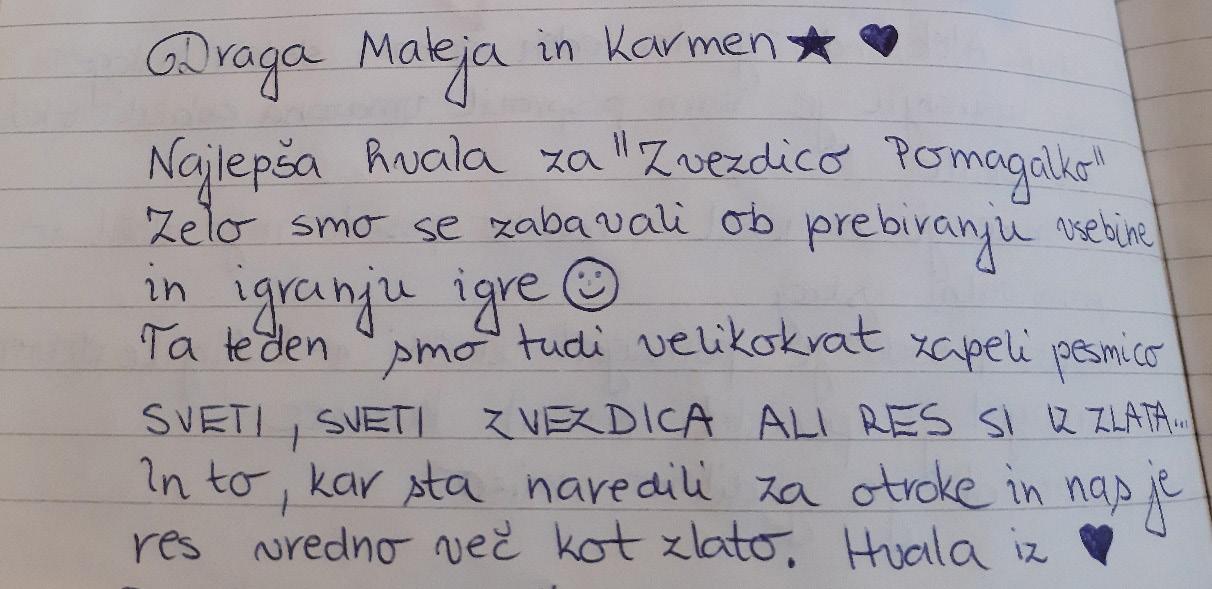 Draga Mateja in Karmen ★ ♥
Najlepša hvala za "Zvezdico Pomagalko"
Zelo smo se zabavali ob prebiranju vsebine
in igranju igre ☺
Ta teden smo tudi velikokrat zapeli pesmico
SVETI, SVETI ZVEZDICA ALI RES SI IZ ZLATA...
In to, kar sta naredili za otroke in nas je
res vredno več kot zlato. Hvala iz ♥